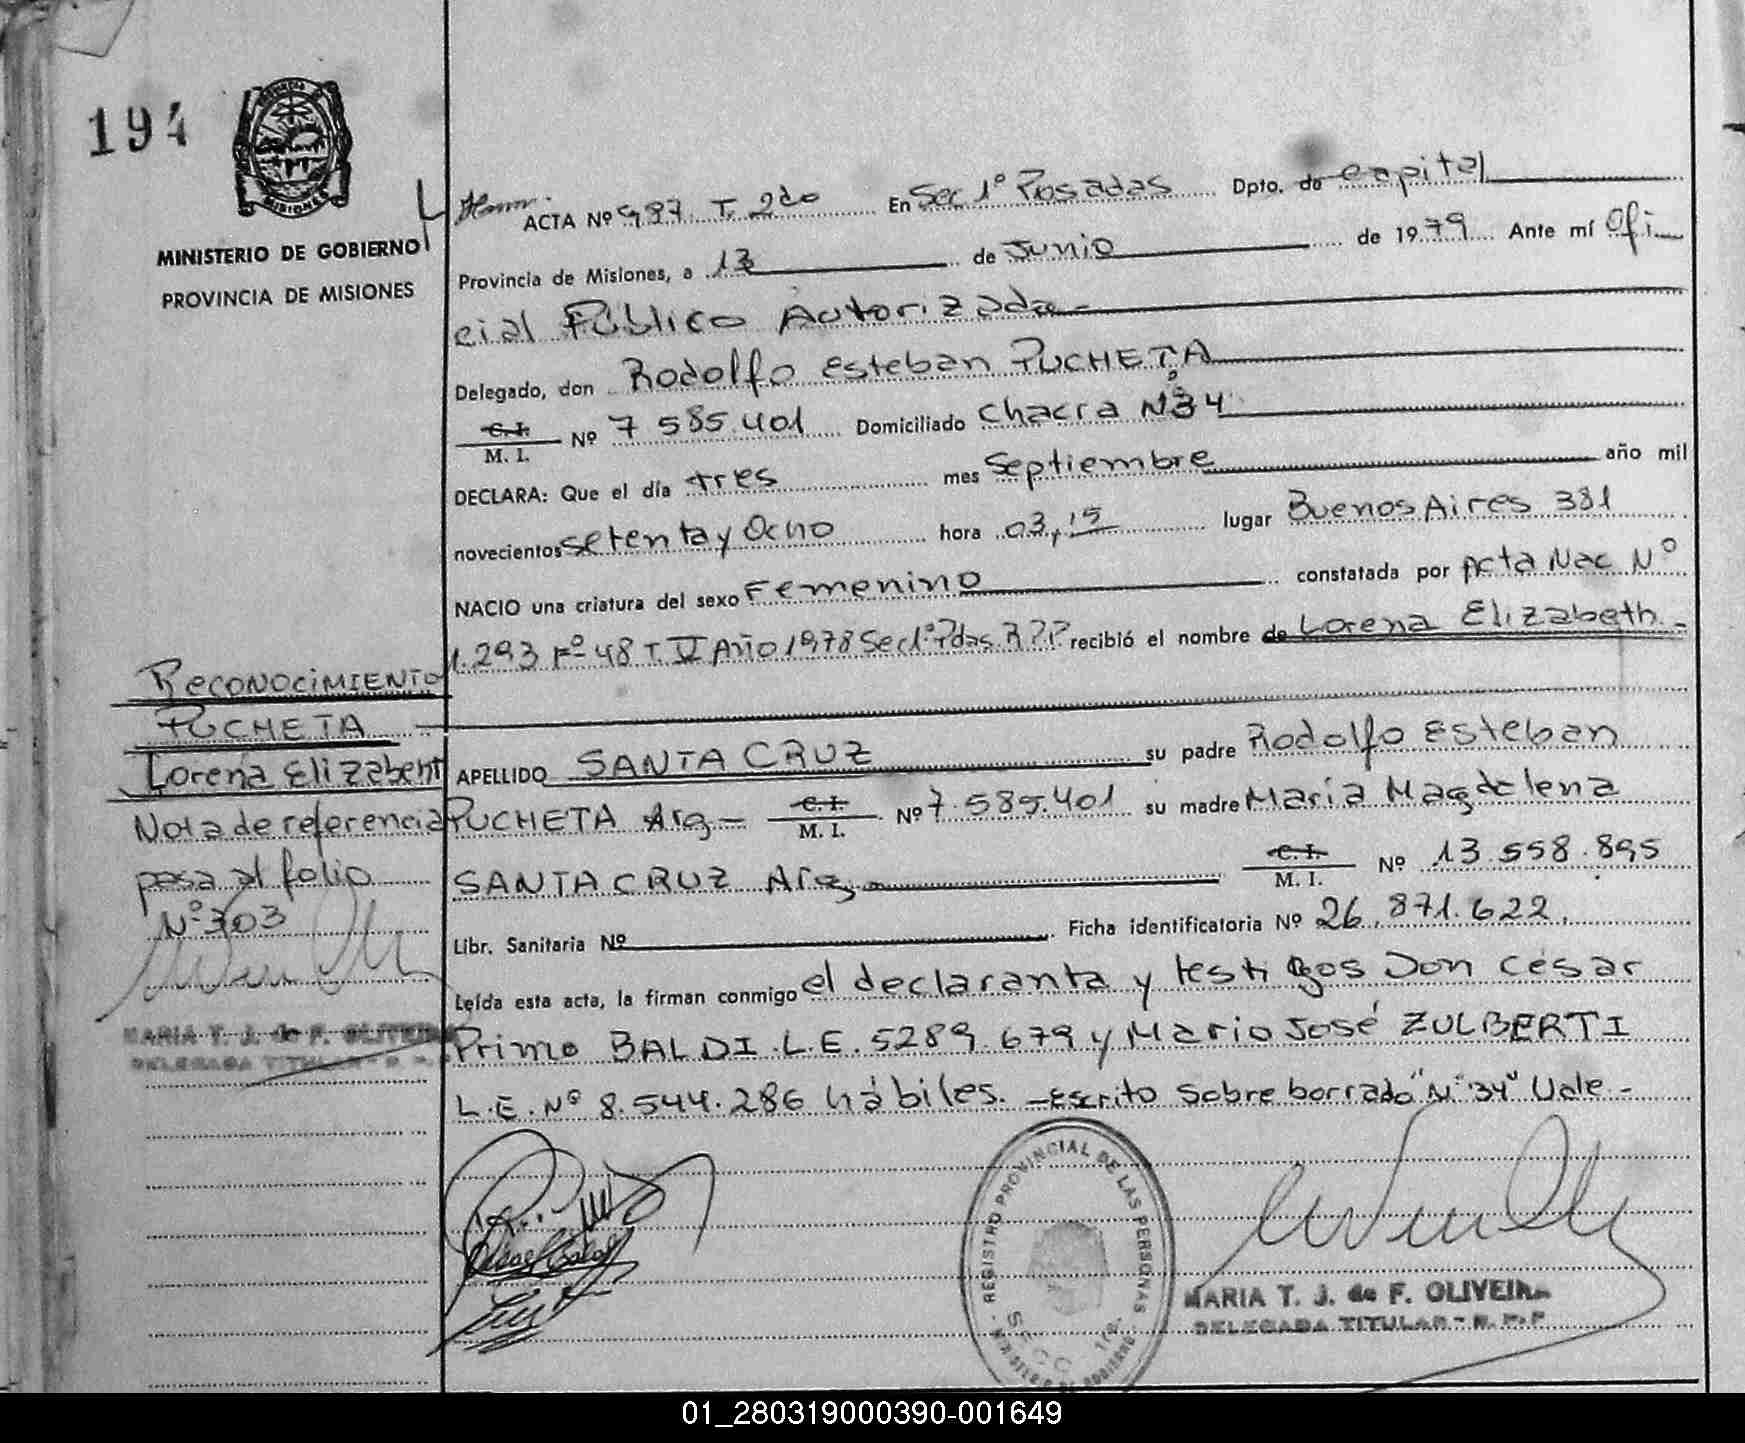 194
PROVINCIA DE
MISIONES
MINISTERIO DE GOBIERNO
PROVINCIA DE MISIONES
ACTA Nº 987 T. 2do En Sec 1º Posadas Dpto. de Capital
Provincia de Misiones, a 13 de Junio de 1979 Ante mí Ofi
cial Público Autorizada
Delegado, don Rodolfo Esteban PUCHETA
C. I.
M. I. Nº 7 585.401 Domiciliado Chacra Nº34
DECLARA: Que el día tres mes Septiembre año mil
novecientos setenta y Ocho hora 03,15 lugar Buenos Aires 381
NACIO una criatura del sexo Femenino constatada por Acta Nac Nº
1.293 Fº 48 T. IV Año 1978 Sec 1º Pdas. R.P.P recibió el nombre de Lorena Elizabeth.-
APELLIDO SANTA CRUZ su padre Rodolfo Esteban
PUCHETA Arg- C. I.
M. I. Nº 7.585.401 su madre Maria Magdalena
SANTA CRUZ Arg. C. I.
M. I. Nº 13.558.895
Libr. Sanitaria Nº Ficha identificatoria Nº 26.871.622.
Leída esta acta, la firman conmigo el declaranta y testigos Don César
Primo BALDI L.E. 5289.679 y Mario José ZULBERTI
L.E. Nº 8.544.286 hábiles. -Escrito Sobre borrado "Nº 34" Vale.-
Reconocimiento
PUCHETA
Lorena Elizabeht
Nota de referencia
pasa al folio
Nº 303
MARIA T. J. de F. OLIVEIRA
DELEGADA TITULAR - R. P. P
REGISTRO PROVINCIAL DE LAS PERSONAS
SECC. 1ra.
MINISTERIO DE GOBIERNO
MARIA T. J. de F. OLIVEIRA
DELEGADA TITULAR - R. P. P
01_280319000390-001649